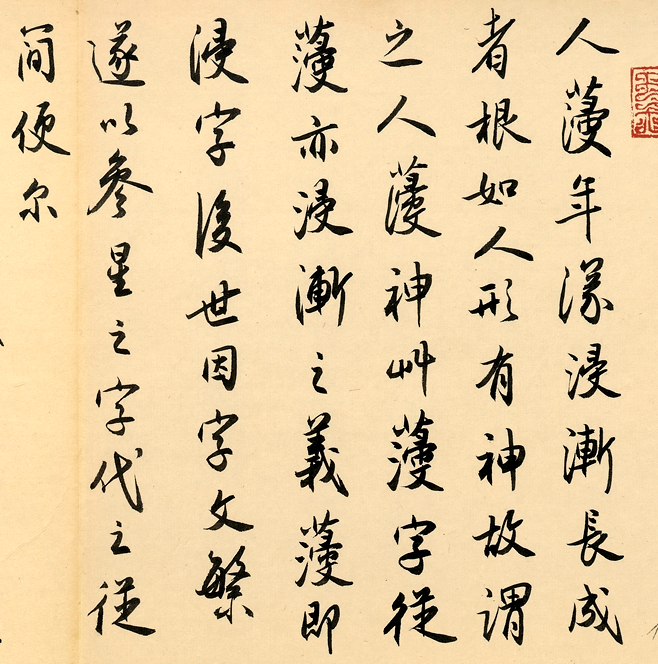 人薓年深浸漸長成
者根如人形有神故謂
之人薓神艸薓字從
薓亦浸漸之義薓即
浸字後世因字文繁
遂以參星之字代之從
簡便尔